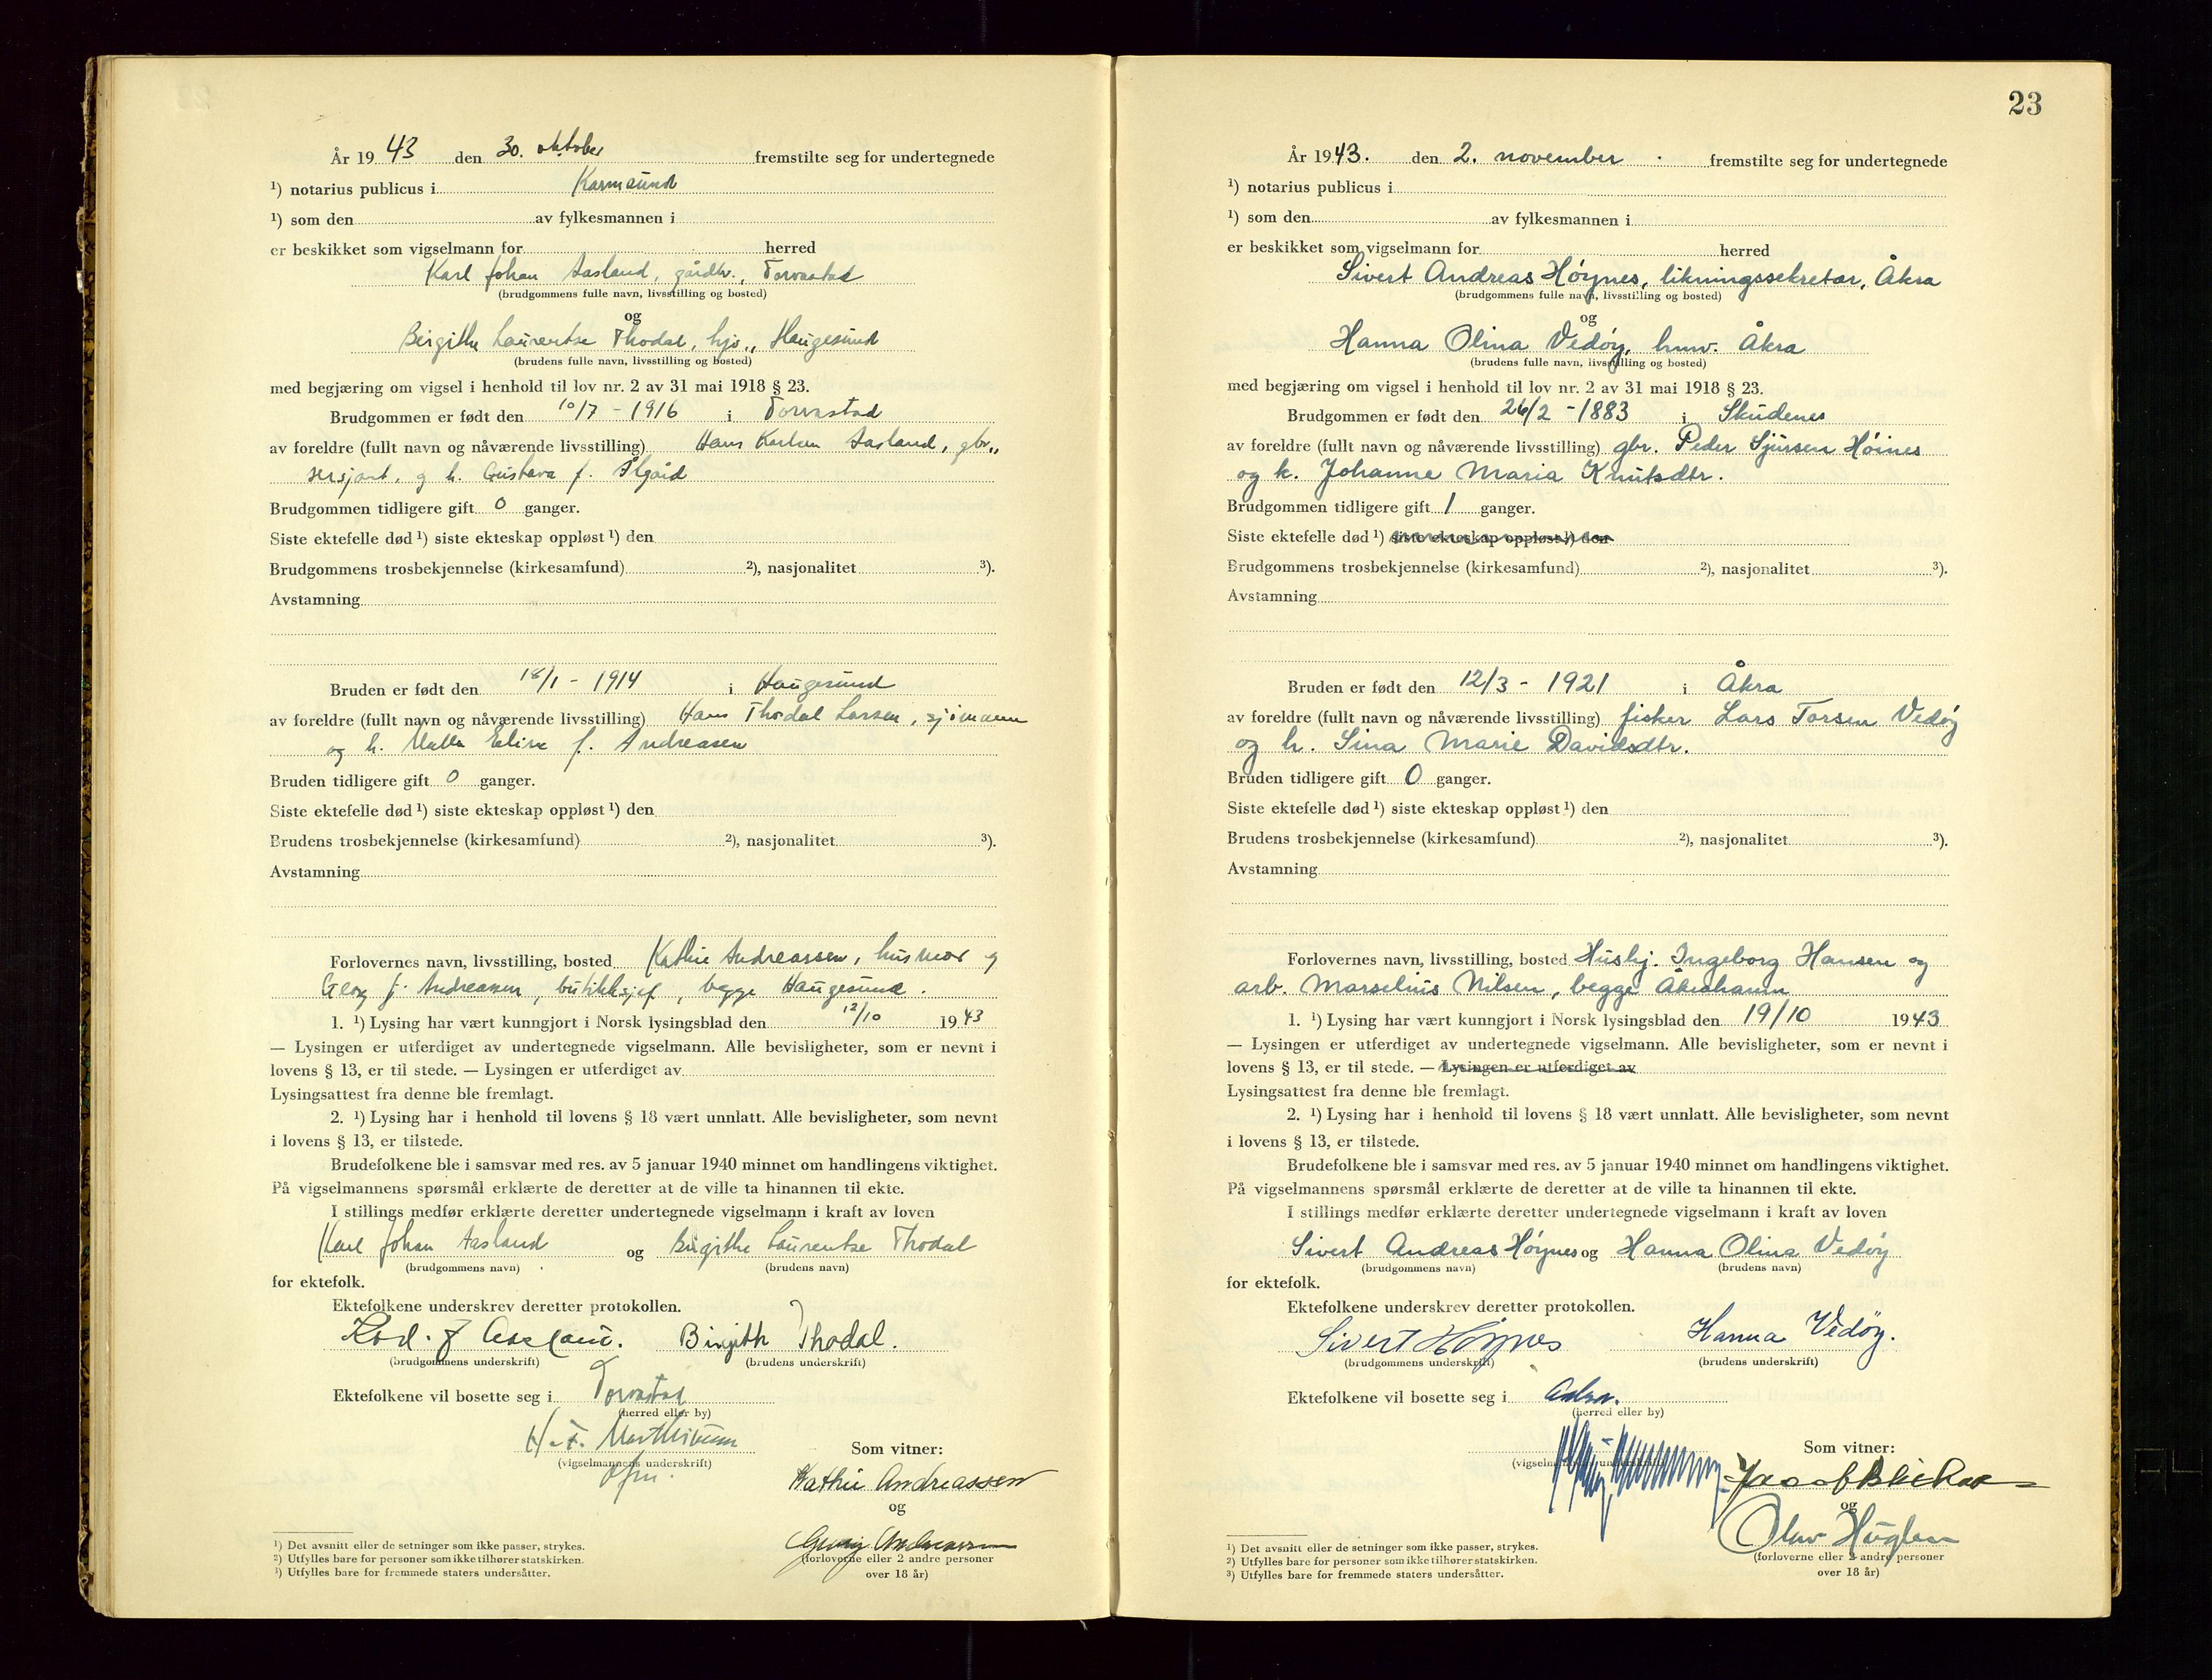 År 19 43 den 30. oktober fremstilte seg for undertegnede
¹) notarius publicus i Karmsund
¹) som den av fylkesmannen i
er beskikket som vigselmann for herred
Karl Johan Aasland, gårdbr., Torvastad
(brudgommens fulle navn, livsstilling og bosted)
og
Birgithe Laurentse Thodal, hjv., Haugesund
(brudens fulle navn, livsstilling og bosted)
med begjæring om vigsel i henhold til lov nr. 2 av 31 mai 1918 § 23.
Brudgommen er født den 10/7 - 1916 i Torvastad
av foreldre (fullt navn og nåværende livsstilling) Hans Karlsen Aasland, gbr.,
sersjant, g h. Gustava f.
Brudgommen tidligere gift 0 ganger.
Siste ektefelle død ¹) siste ekteskap oppløst ¹) den
Brudgommens trosbekjennelse (kirkesamfund) ²), nasjonalitet ³).
Avstamning
Bruden er født den 18/1 - 1914 i Haugesund
av foreldre (fullt navn og nåværende livsstilling) Hans Thodal Larsen, sjömann
og h. Elise f. Andreasen
Bruden tidligere gift 0 ganger.
Siste ektefelle død ¹) siste ekteskap oppløst ¹) den
Brudens trosbekjennelse (kirkesamfund) ²), nasjonalitet ³).
Avstamning
Forlovernes navn, livsstilling, bosted Kathie Andreassen, husmor g
Georg J. Andreassen, butikksjef, begge Haugesund.
1. ¹) Lysing har vært kunngjort i Norsk lysingsblad den 12/10 19 43
— Lysingen er utferdiget av undertegnede vigselmann. Alle bevisligheter, som er nevnt i
lovens § 13, er til stede. — Lysingen er utferdiget av
Lysingsattest fra denne ble fremlagt.
2. ¹) Lysing har i henhold til lovens § 18 vært unnlatt. Alle bevisligheter, som nevnt
i lovens § 13, er tilstede.
Brudefolkene ble i samsvar med res. av 5 januar 1940 minnet om handlingens viktighet.
På vigselmannens spørsmål erklærte de deretter at de ville ta hinannen til ekte.
I stillings medfør erklærte deretter undertegnede vigselmann i kraft av loven
Karl Johan Aasland og Birgithe Laurentse Thodal
(brudgommens navn) (brudens navn)
for ektefolk.
Ektefolkene underskrev deretter protokollen.
Karl. J Aasland. Birgith Thodal.
(brudgommens underskrift) (brudens underskrift)
Ektefolkene vil bosette seg i Torvastad
(herred eller by)
(vigselmannens underskrift)
Som vitner:
Kathie Andreassen
og
Georg Andreassen
(forloverne eller 2 andre personer
over 18 år)
¹) Det avsnitt eller de setninger som ikke passer, strykes.
²) Utfylles bare for personer som ikke tilhører statskirken.
³) Utfylles bare for fremmede staters undersåtter.
23
År 19 43. den 2. november. fremstilte seg for undertegnede
¹) notarius publicus i
¹) som den av fylkesmannen i
er beskikket som vigselmann for herred
Sivert Andreas Höynes, likningssekretær, Åkra
(brudgommens fulle navn, livsstilling og bosted)
og
Hanna Olina Vedöy, hunv. Åkra
(brudens fulle navn, livsstilling og bosted)
med begjæring om vigsel i henhold til lov nr. 2 av 31 mai 1918 § 23.
Brudgommen er født den 26/2 - 1883 i Skudenes
av foreldre (fullt navn og nåværende livsstilling) gbr. Peder Sjursen Höines
og h. Johanne Maria Knutsdtr.
Brudgommen tidligere gift 1 ganger.
Siste ektefelle død ¹) siste ekteskap oppløst ¹) den
Brudgommens trosbekjennelse (kirkesamfund) ²), nasjonalitet ³).
Avstamning
Bruden er født den 12/3 - 1921 i Åkra
av foreldre (fullt navn og nåværende livsstilling) fisker Lars Torsen Vedöy
og h. Sina Marie Davidsdtr.
Bruden tidligere gift 0 ganger.
Siste ektefelle død ¹) siste ekteskap oppløst ¹) den
Brudens trosbekjennelse (kirkesamfund) ²), nasjonalitet ³).
Avstamning
Forlovernes navn, livsstilling, bosted Hushj. Ingeborg Hansen og
arb. Marselius Nilsen, begge Åkrahamn
1. ¹) Lysing har vært kunngjort i Norsk lysingsblad den 19/10 19 43
— Lysingen er utferdiget av undertegnede vigselmann. Alle bevisligheter, som er nevnt i
lovens § 13, er til stede. — Lysingen er utferdiget av
Lysingsattest fra denne ble fremlagt.
2. ¹) Lysing har i henhold til lovens § 18 vært unnlatt. Alle bevisligheter, som nevnt
i lovens § 13, er tilstede.
Brudefolkene ble i samsvar med res. av 5 januar 1940 minnet om handlingens viktighet.
På vigselmannens spørsmål erklærte de deretter at de ville ta hinannen til ekte.
I stillings medfør erklærte deretter undertegnede vigselmann i kraft av loven
Sivert Andreas Höynes og Hanna Olina Vedöy
(brudgommens navn) (brudens navn)
for ektefolk.
Ektefolkene underskrev deretter protokollen.
Sivert Höynes Hanna Vedöy.
(brudgommens underskrift) (brudens underskrift)
Ektefolkene vil bosette seg i Åkra.
(herred eller by)
(vigselmannens underskrift)
Som vitner:
og
Olav
(forloverne eller 2 andre personer
over 18 år)
¹) Det avsnitt eller de setninger som ikke passer, strykes.
²) Utfylles bare for personer som ikke tilhører statskirken.
³) Utfylles bare for fremmede staters undersåtter.